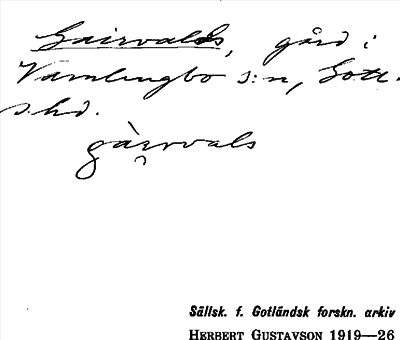 Gairvalds, gård i
Vamlingbo s:n, Gotl.
s. hd.
gàirvals
Sällsk. f. Gotländsk forskn. arkiv
HERBERT GUSTAVSON 1919—26